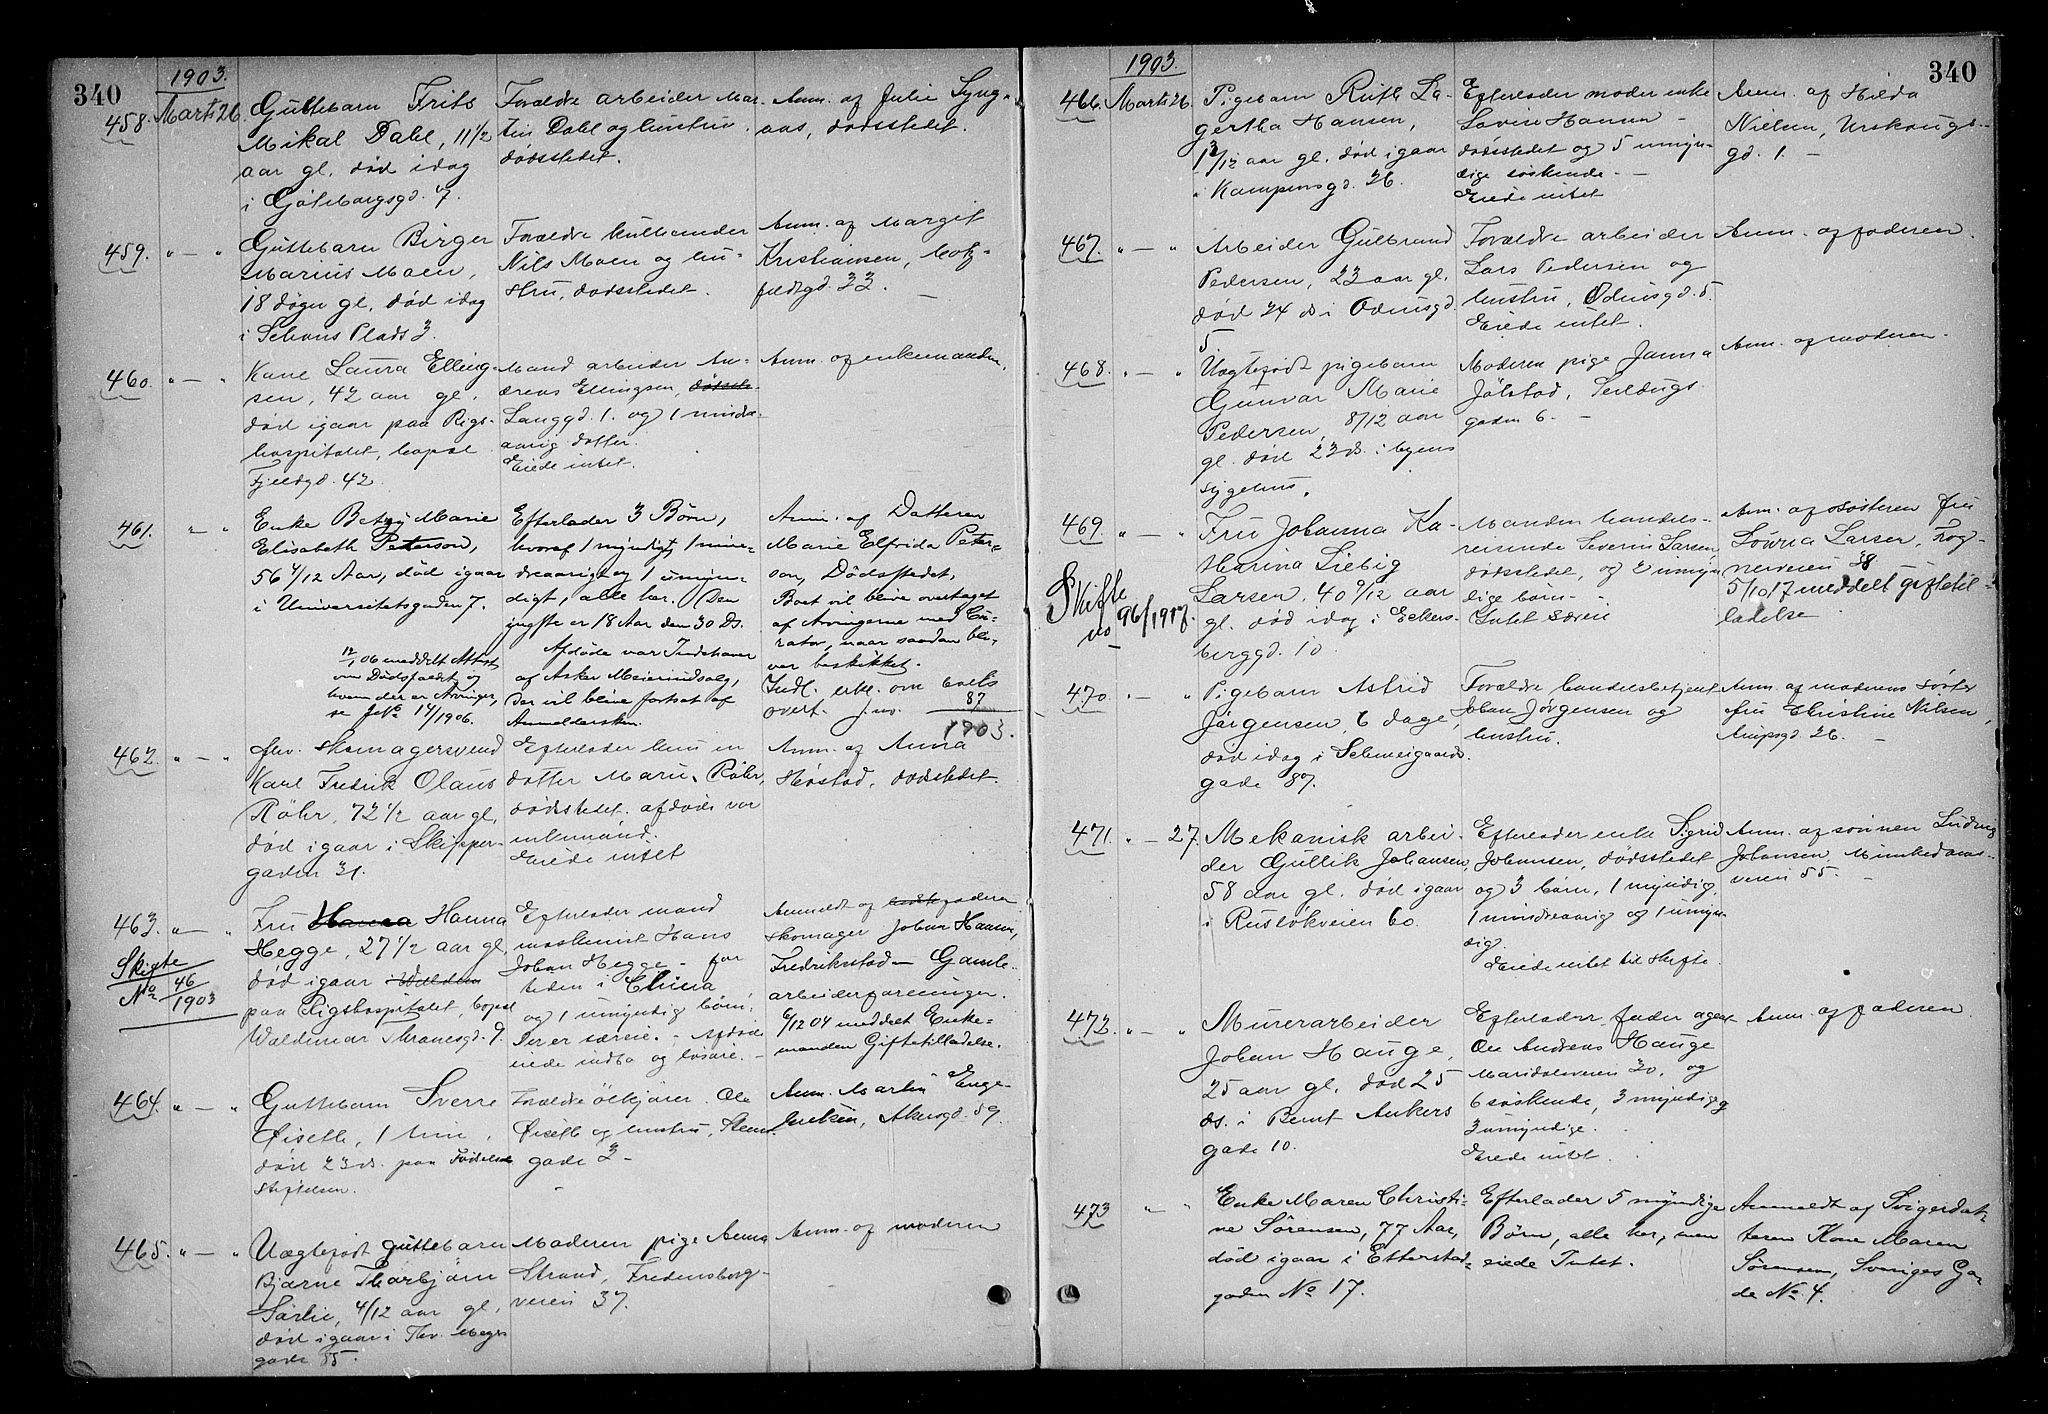 340
1903.
458. Marts 26.
Guttebarn Frits
Mikal Dahl, 11 1/2
aar gl. død idag
i Göteborgsgd. 7.
Forældre arbeider Mar-
tin Dahl og hustru.
dødsstedet.
Anm. af Julie Lyng-
aas, dødsstedet.
459. " — "
Guttebarn Birger
Marius Moen,
18 døgn gl. død idag
i Schous Plads 3.
Forældre
Nils Moen og hu-
stru, dødsstedet.
Anm. af Margit
Kristiansen,
33.
460. " — "
Kone Laura Elling-
sen, 42 aar gl.
død igaar paa Rigs-
hospitalet, bopæl
Fjeldgd. 42.
Mand arbeider An-
dreas Ellingsen,
Langgd. 1. og 1 mindre-
aarig datter.
Eiede intet.
Anm. af enkemanden.
461. " "
Enke Betzy Marie
Elisabeth Peterson,
56 4/12 Aar, død igaar
i Universitetsgaden 7.
12/1 06 meddelt Attest
om Dødsfaldet og
hvem der er Arvinger,
se J.No 14/1906.
Efterlader 3 Børn,
hvoraf 1 myndigt, 1 min-
dreaarigt og 1 umyn-
digt, alle her. Den
yngste er 18 Aar den 30 Ds.
Afdøde var Indehaver
af Asker Meieriudsalg,
der vil blive fortsat af
Anmeldersken.
Anm. af Datteren
Marie Elfrida Peter-
son, Dødsstedet,
Boet vil blive overtaget
af Arvingerne med Cu-
rator, naar saadan bli-
ver beskikket.
Indl. erkl. om boets
overt. j.no. 87
1903.
462. " — "
fhv. skomagersvend
Karl Fredrik Olaus
Röhr, 72 1/2 aar gl.
død igaar i Skipper-
gaden 31.
Efterlader kun en
datter Marie Röhr,
dødsstedet. afdøde var
enkemand.
Eiede intet
Anm. af Anna
Høstad, dødsstedet.
463. " — "
Skifte
No 46
1903
Fru Hanna Hanna
Hegge, 27 1/2 aar gl.
død igaar
paa Rigshospitalet, bopæl
Waldemar Thranesgd. 9.
Efterlader mand
maskinist Hans
Johan Hegge - for
tiden i China
og 1 umyndig barn.
Der er særeie. - Afdøde
eiede indbo og løsøre. -
Anmeldt af faderen
skomager Johan Hansen,
Fredriksstad - Gamle
arbeiderforeninger.
6/12 04 meddelt Enke-
manden Giftetilladelse.
464. " — "
Guttebarn Sverre
Øiseth, 1 time,
død 23 ds. paa Fødsels-
stiftelsen.
Forældre ølkjører Ole
Øiseth og hustru, Steen-
gade 3 -
Anm. Martin Enge-
bretsen, Akersgd. 59.
465. " — "
Uægtefødt guttebarn
Bjarne Thorbjørn
Sørlie, 4/12 aar gl.
død igaar i Thv. Meyers
gade 85.
Moderen pige Anna
Strand, Fredensborg-
veien 37.
Anm. af moderen
340
1903.
466. Marts 26.
Pigebarn Ruth La-
gertha Hansen,
1 3/12 aar gl. død igaar
i Kampensgd. 26.
Efterlader moder enke
Lovise Hansen -
dødsstedet og 5 umyn-
dige søskende. -
Eiede intet
Anm. af Hilda
Nielsen, Urskougs-
gd. 1. -
467. " — "
Arbeider Gulbrand
Pedersen, 23 aar gl.
død 24 ds i Odinsgd.
5.
Forældre arbeider
Lars Pedersen og
hustru, Odinsgd. 5.
Eiede intet.
Anm. af faderen.
468. " — "
Uægtefødt pigebarn
Gunvar Marie
Pedersen, 8/12 aar
gl. død 23 ds. i byens
sygehus.
Moderen pige Janna
Jølstad, Seildugs-
gaden 6. -
Anm. af moderen.
469. " — "
Skifte
no 96/1917.
Fru Johanna Ka-
tharina Liebig
Larsen, 40 9/12 aar
gl. død idag i Eckers-
berggd. 10.
Manden handels-
reisende Severin Larsen,
dødsstedet, og 2 umyn-
dige barn. -
Intet særeie
Anm. af søsteren fru
Lovisa Larsen, Frog-
nerveien 38
5/10 17 meddelt giftetil-
ladelse
470. " — "
Pigebarn Astrid
Jørgensen, 6 dage,
død idag i Schweigaards-
gade 87.
Forældre handelsbetjent
Johan Jørgensen og
hustru.
Anm. af moderens søster
fru Christine Nilsen,
Arupsgd. 26. -
471. " — 27.
Mekanisk arbei-
der Gullik Johansen,
58 aar gl. død igaar
i Ruseløkveien 60.
Efterlader enke Sigrid
Johansen, dødsstedet
og 3 børn, 1 myndig,
1 mindreaarig og 1 umyn-
dig.
Eiede intet til skifte.
Anm. af sønnen Ludvig
Johansen, Munkedams-
veien 55. -
472. " — "
Murerarbeider
Johan Hauge,
25 aar gl. død 25
ds. i Bernt Ankers
gade 10.
Efterlader fader agent
Ole Andreas Hauge
Maridalsveien 30, og
6 søskende, 3 myndige og
3 umyndige.
Eiede intet.
Anm. af faderen
473 " "
Enke Maren Christi-
ne Sørensen, 77 Aar,
død igaar i Etterstad-
gaden No 17.
Efterlader 5 myndige
Børn, alle her, men
eiede Intet.
Anmeldt af Svigerdat-
teren Kone Maren
Sørensen, Sveriges Ga-
de No 4.